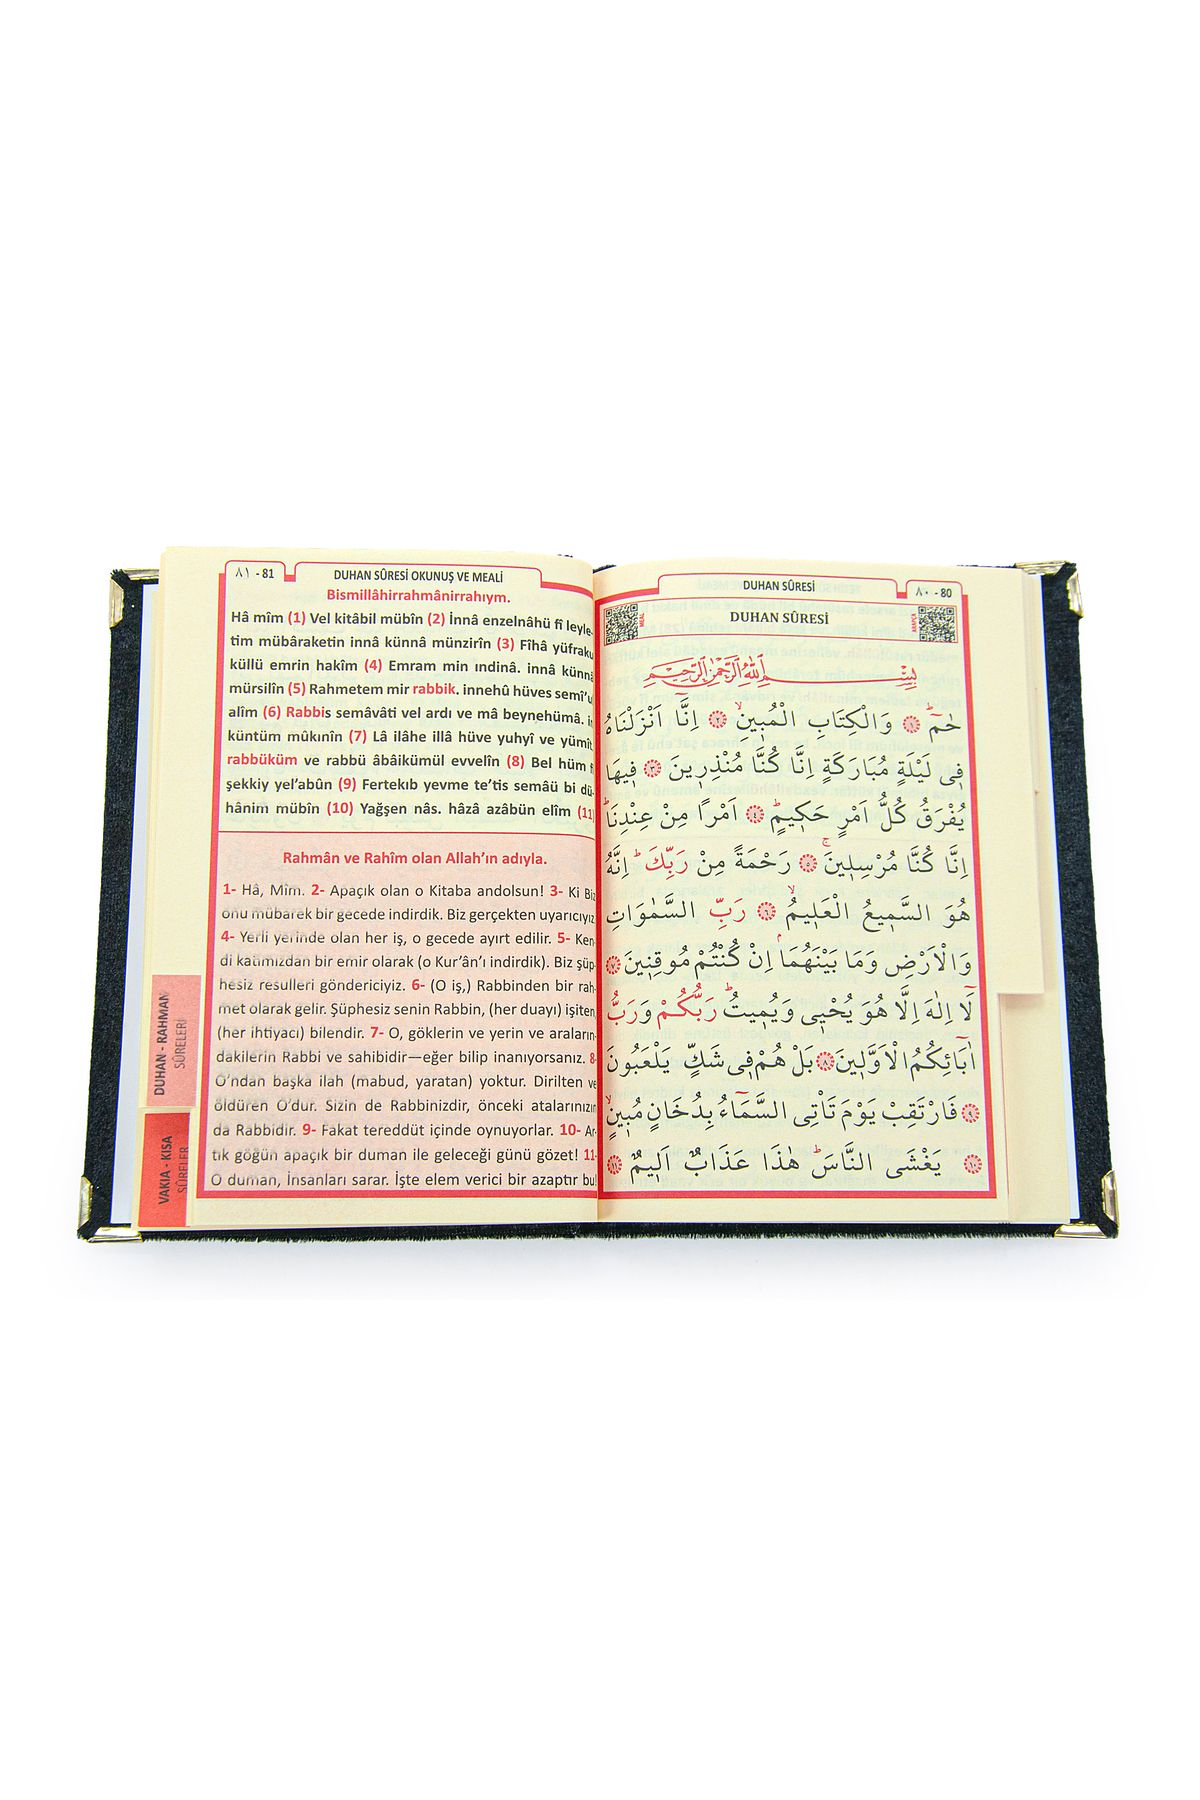 ٨١ - 81
DUHAN SÛRESİ OKUNUŞ VE MEALİ
Bismillâhirrahmânirrahıym.
Hâ mîm (1) Vel kitâbil mübîn (2) İnnâ enzelnâhü fî leyle-
tim mübâraketin innâ künnâ münzirîn (3) Fîhâ yüfraku
küllü emrin hakîm (4) Emram min ındinâ. innâ künnâ
mürsilîn (5) Rahmetem mir rabbik. innehû hüves semî'u
alîm (6) Rabbis semâvâti vel ardı ve mâ beynehümâ. in
küntüm mûkınîn (7) Lâ ilâhe illâ hüve yuhyî ve yümît
rabbüküm ve rabbü âbâikümül evvelîn (8) Bel hüm fî
şekkiy yel'abûn (9) Fertekıb yevme te'tis semâü bi dü-
hânim mübîn (10) Yağşen nâs. hâzâ azâbün elîm (11)
Rahmân ve Rahîm olan Allah'ın adıyla.
1- Hâ, Mîm. 2- Apaçık olan o Kitaba andolsun! 3- Ki Biz
onu mübarek bir gecede indirdik. Biz gerçekten uyarıcıyız
4- Yerli yerinde olan her iş, o gecede ayırt edilir. 5- Ken-
di katımızdan bir emir olarak (o Kur'ân'ı indirdik). Biz şüp-
hesiz resulleri göndericiyiz. 6- (O iş,) Rabbinden bir rah-
met olarak gelir. Şüphesiz senin Rabbin, (her duayı) işiten,
(her ihtiyacı) bilendir. 7- O, göklerin ve yerin ve araların-
dakilerin Rabbi ve sahibidir—eğer bilip inanıyorsanız. 8-
O'ndan başka ilah (mabud, yaratan) yoktur. Dirilten ve
öldüren O'dur. Sizin de Rabbinizdir, önceki atalarınızın
da Rabbidir. 9- Fakat tereddüt içinde oynuyorlar. 10- Ar-
tık göğün apaçık bir duman ile geleceği günü gözet! 11-
O duman, İnsanları sarar. İşte elem verici bir azaptır bu!
DUHAN - RAHMAN
SÛRELERİ
VAKIA - KISA
SÛRELER
DUHAN SÛRESİ
٨٠ - 80
MEAL
DUHAN SÛRESİ
ARAPÇA
بِسْمِ اللّٰهِ الرَّحْمٰنِ الرَّحِيمِ
حٰمٓ ۚ ﴿١﴾ وَالْكِتَابِ الْمُبِينِ ۙ ﴿٢﴾ اِنَّٓا اَنْزَلْنَاهُ
فِي لَيْلَةٍ مُبَارَكَةٍ اِنَّا كُنَّا مُنْذِرِينَ ﴿٣﴾ فِيهَا
يُفْرَقُ كُلُّ اَمْرٍ حَكِيمٍ ۙ ﴿٤﴾ اَمْرًا مِنْ عِنْدِنَا ۜ
اِنَّا كُنَّا مُرْسِلِينَ ۚ ﴿٥﴾ رَحْمَةً مِنْ رَبِّكَ ۜ اِنَّهُ
هُوَ السَّمِيعُ الْعَلِيمُ ۙ ﴿٦﴾ رَبِّ السَّمٰوَاتِ
وَالْاَرْضِ وَمَا بَيْنَهُمَا ۢ اِنْ كُنْتُمْ مُوقِنِينَ ﴿٧﴾
لَٓا اِلٰهَ اِلَّا هُوَ يُحْيِي وَيُمِيتُ ۜ رَبُّكُمْ وَرَبُّ
اٰبَٓائِكُمُ الْاَوَّلِينَ ﴿٨﴾ بَلْ هُمْ فِي شَكٍّ يَلْعَبُونَ
﴿٩﴾ فَارْتَقِبْ يَوْمَ تَأْتِي السَّمَٓاءُ بِدُخَانٍ مُبِينٍ ۙ
﴿١٠﴾ يَغْشَى النَّاسَ ۜ هٰذَا عَذَابٌ اَلِيمٌ ﴿١١﴾